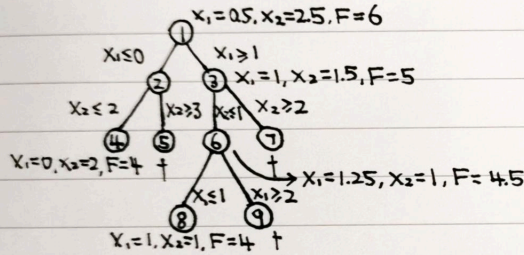 X₁=0.5, X₂=2.5, F=6
1
X₁≤0 X₁≥1
2 3 X₁=1, X₂=1.5, F=5
X₂≤2 X₂≥3 X₂≤1 X₂≥2
4 5 6 7
X₁=0, X₂=2, F=4 † †
X₁=1.25, X₂=1, F=4.5
X₁≤1 X₁≥2
8 9
X₁=1, X₂=1, F=4 †